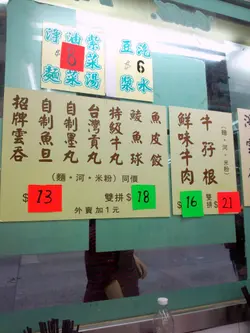 淨麵
油菜
紫菜湯
$6
豆漿
汽水
$6
招牌雲吞
自制魚旦
自制墨丸
台灣貢丸
特級牛丸
鯪魚球
魚皮餃
(麵・河・米粉)同價
$13 雙拼$18
外賣加1元
鮮味牛肉
牛孖根
(麵・河・米粉)
$16 雙拼$21